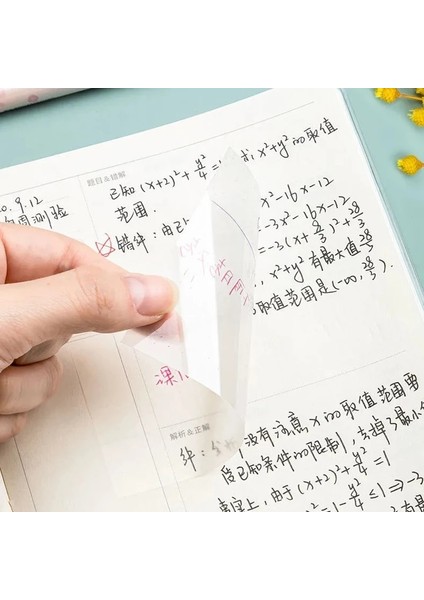 0.9.12
周测验
题目&错解
已知(x+2)²+y²/4=1 求x²+y²的取值
范围.
错解：由已
x²-16x-12
=-3x²-16x-12
=-3(x+8/3)²+28/3
x²+y²有最大值28/3
取值范围是(-∞, 28/3).
课
解析&正解
解：
没有注意x的取值范围要
受已知条件的限制，丢掉了最小值
事实上，由于(x+2)²+y²/4=1
=1-y²/4≤1⇒-3